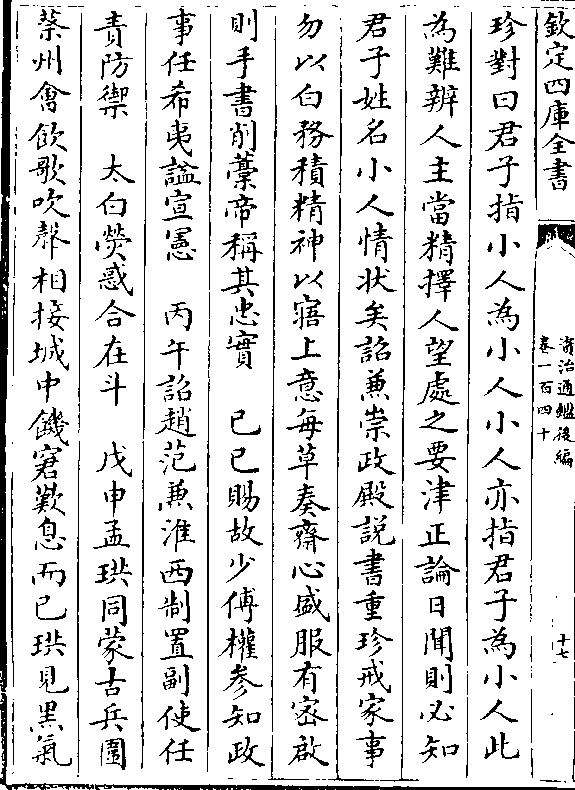 欽定四庫全書
資治通鑑後編
卷一百四十
十七
珍對曰君子指小人為小人小人亦指君子為小人此
為難辨人主當精擇人望處之要津正論日聞則必知
君子姓名小人情状矣詔兼崇政殿説書重珍戒家事
勿以白務積精神以寤上意每草奏齋心盛服有宻啟
則手書削藳帝稱其忠實　已巳賜故少傅權参知政
事任希夷諡宣憲　丙午詔趙范兼淮西制置副使任
責防禦　太白熒惑合在斗　戊申孟珙同蒙古兵圍
蔡州會飲歌吹聲相接城中饑窘歎息而已珙見黑氣